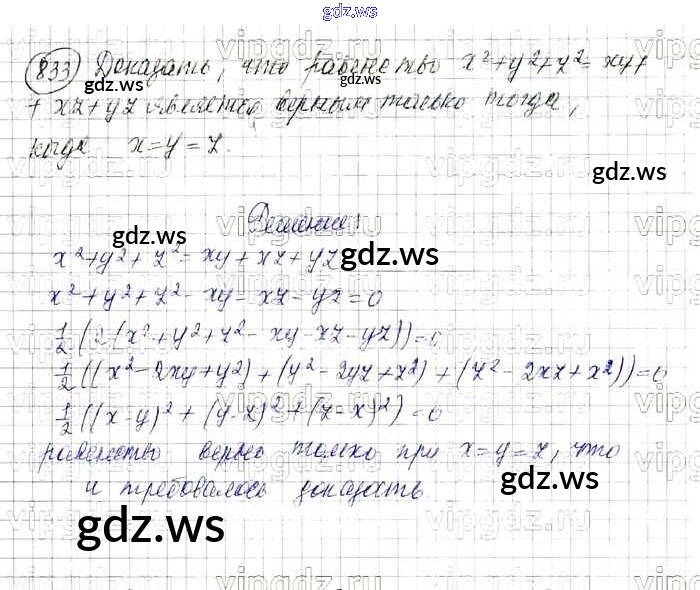 gdz.ws
833 Доказать, что равенство x²+y²+z²= xy+
+ xz+yz является верным только тогда,
когда x=y=z.
gdz.ws
Решение:
gdz.ws
x²+y²+z²= xy+xz+yz
gdz.ws
x²+y²+z²-xy-xz-yz=0
½(2(x²+y²+z²-xy-xz-yz))=0
½((x²-2xy+y²)+(y²-2yz+z²)+(z²-2xz+x²))=0
½((x-y)²+(y-z)²+(z-x)²)=0
равенство верно только при x=y=z, что
и требовалось доказать.
gdz.ws
gdz.ws
vipgdz.ru